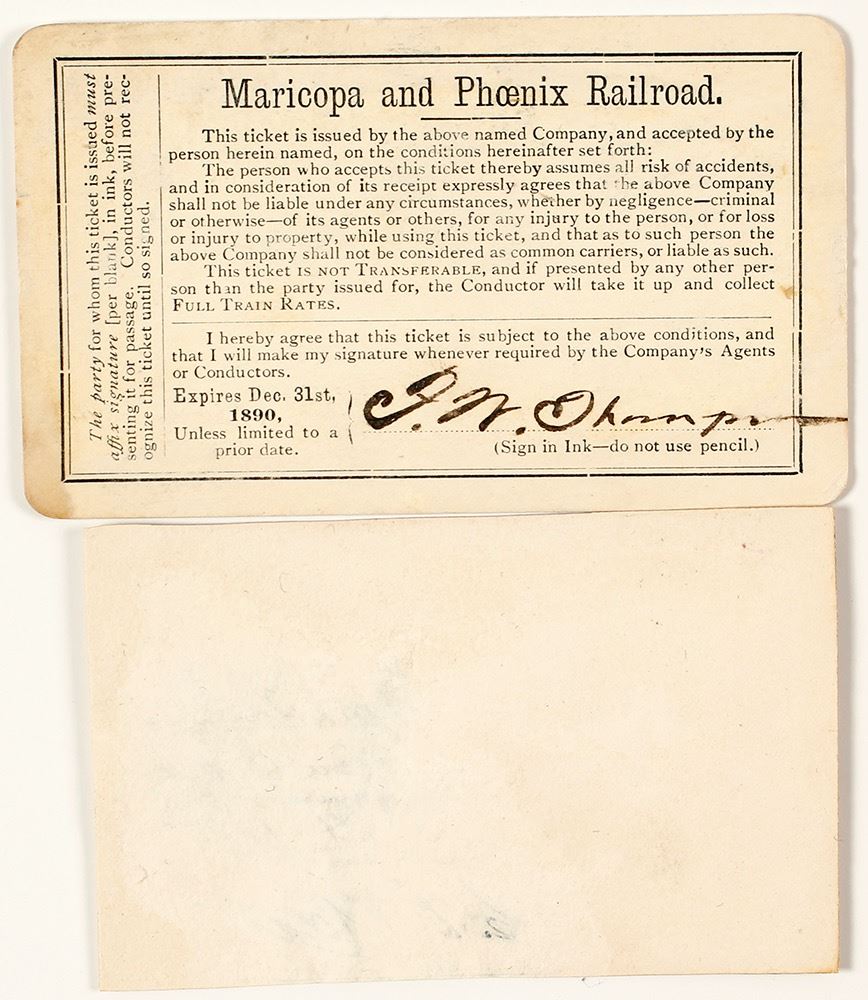 Maricopa and Phœnix Railroad.
This ticket is issued by the above named Company, and accepted by the
person herein named, on the conditions hereinafter set forth:
The person who accepts this ticket thereby assumes all risk of accidents,
and in consideration of its receipt expressly agrees that the above Company
shall not be liable under any circumstances, whether by negligence—criminal
or otherwise—of its agents or others, for any injury to the person, or for loss
or injury to property, while using this ticket, and that as to such person the
above Company shall not be considered as common carriers, or liable as such.
This ticket IS NOT TRANSFERABLE, and if presented by any other per-
son than the party issued for, the Conductor will take it up and collect
FULL TRAIN RATES.
I hereby agree that this ticket is subject to the above conditions, and
that I will make my signature whenever required by the Company's Agents
or Conductors.
Expires Dec. 31st,
1890,
Unless limited to a
prior date.
W.
(Sign in Ink—do not use pencil.)
The party for whom this ticket is issued must
affix signature [per blank], in ink, before pre-
senting it for passage. Conductors will not rec-
ognize this ticket until so signed.